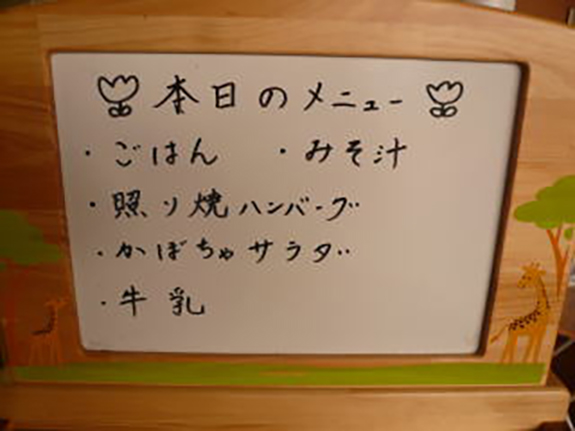 本日のメニュー
・ごはん ・みそ汁
・照り焼ハンバーグ
・かぼちゃサラダ
・牛乳